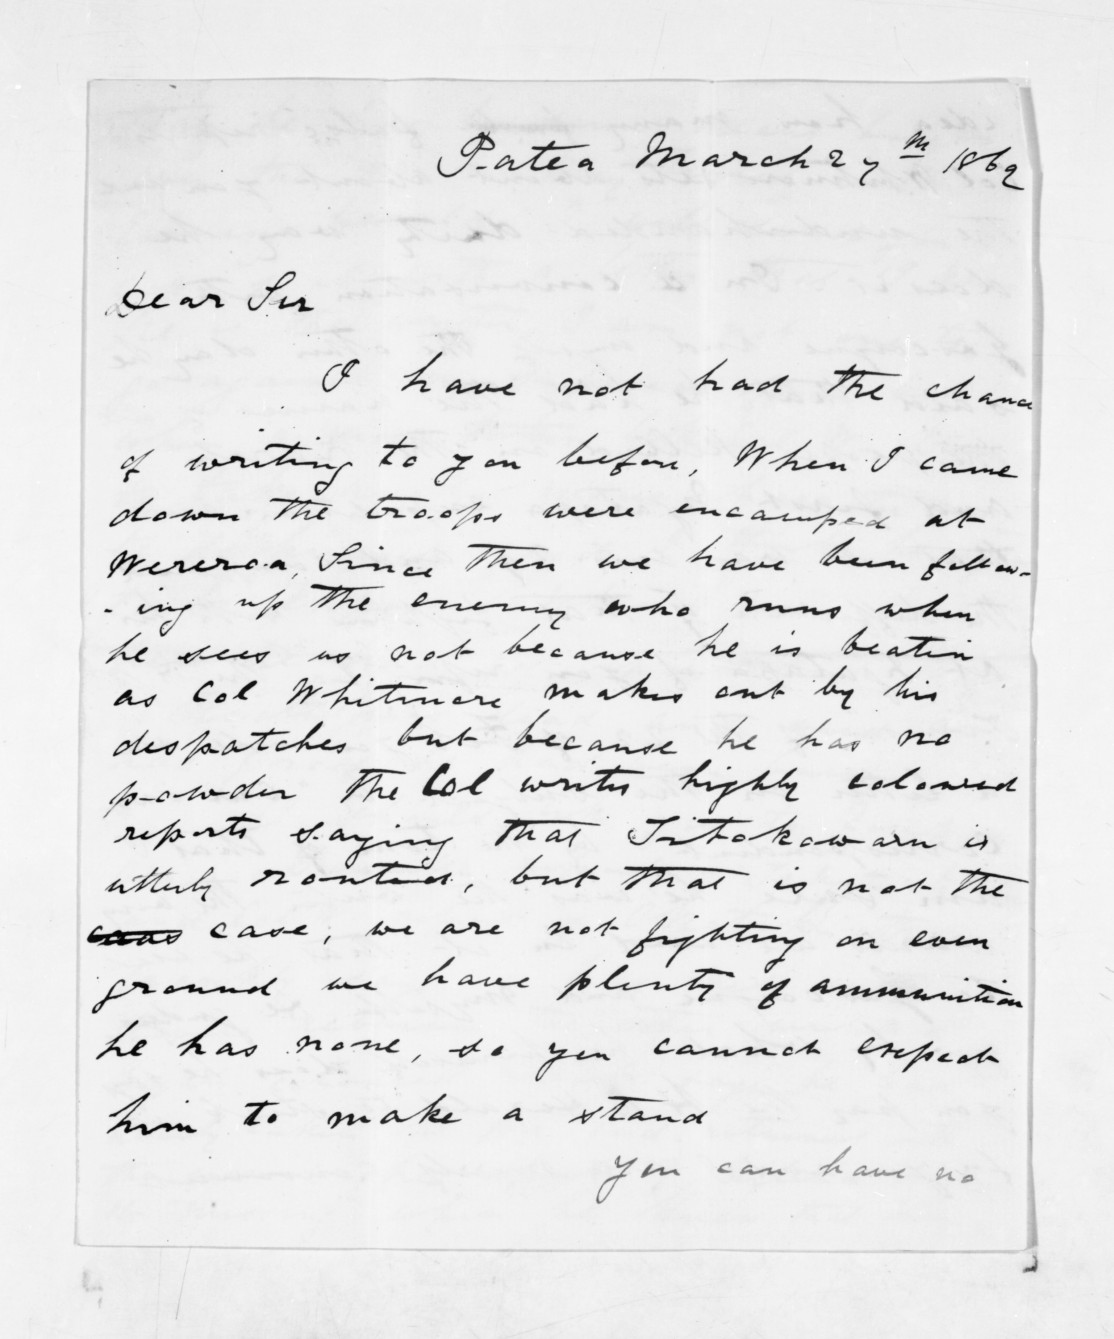 Patea March 27th 1869
Dear Sir
I have not had the chance
of writing to you before, When I came
down the troops were encamped at
Wereroa, Since then we have been follow-
-ing up the enemy who runs when
he sees us not because he is beatin
as Col Whitmore makes out by his
despatches but because he has no
powder the Col writes highly coloured
reports saying that Titokowaru is
utterly routed, but that is not the
case, we are not fighting on even
ground we have plenty of ammunition
he has none, so you cannot expect
him to make a stand
You can have no